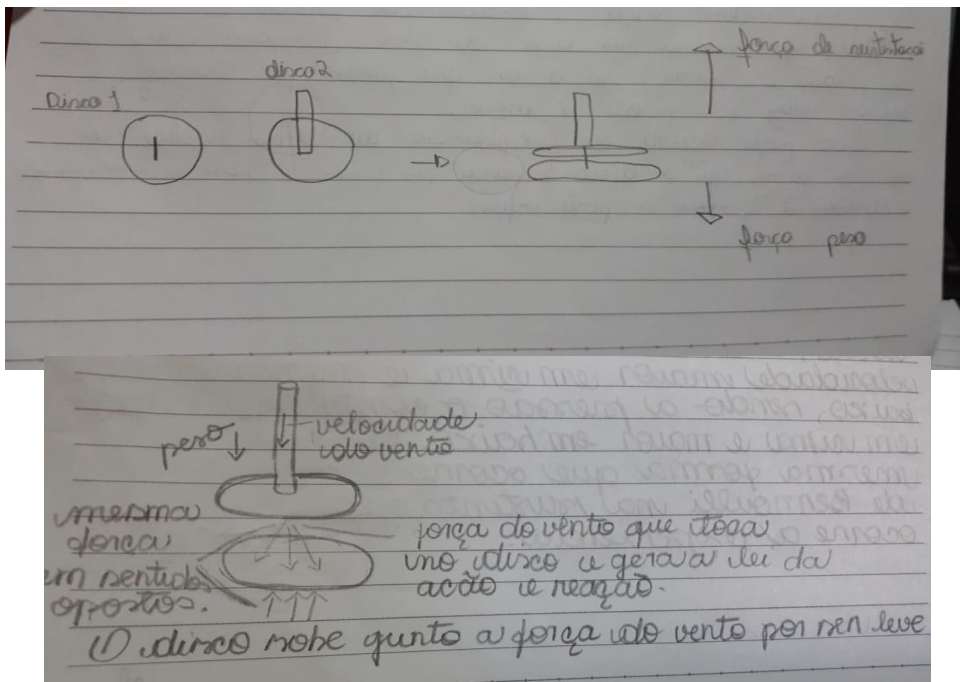 força de sustentação
disco 2
Disco 1
força peso
peso
velocidade
do vento
mesma
força
em sentidos
opostos.
força do vento que toca
no disco e gera a lei da
acão e reação.
O disco sobe gunto a força do vento por ser leve